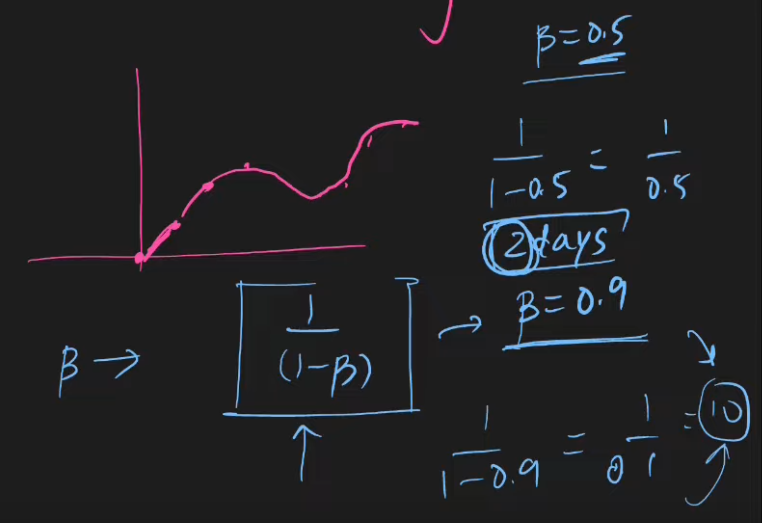 β = 0.5
1/(1-0.5) = 1/0.5
2 days
β → 1/(1-β) → β = 0.9
1/(1-0.9) = 1/0.1 = 10